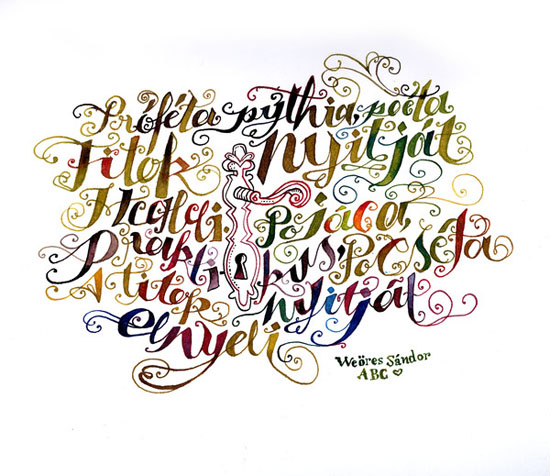 Próféta, pythia, poéta
Titok nyitját
Megoldi. Pojáca,
Praktikus, Pocséta
A titok nyitját
elnyeli
Weöres Sándor
ABC